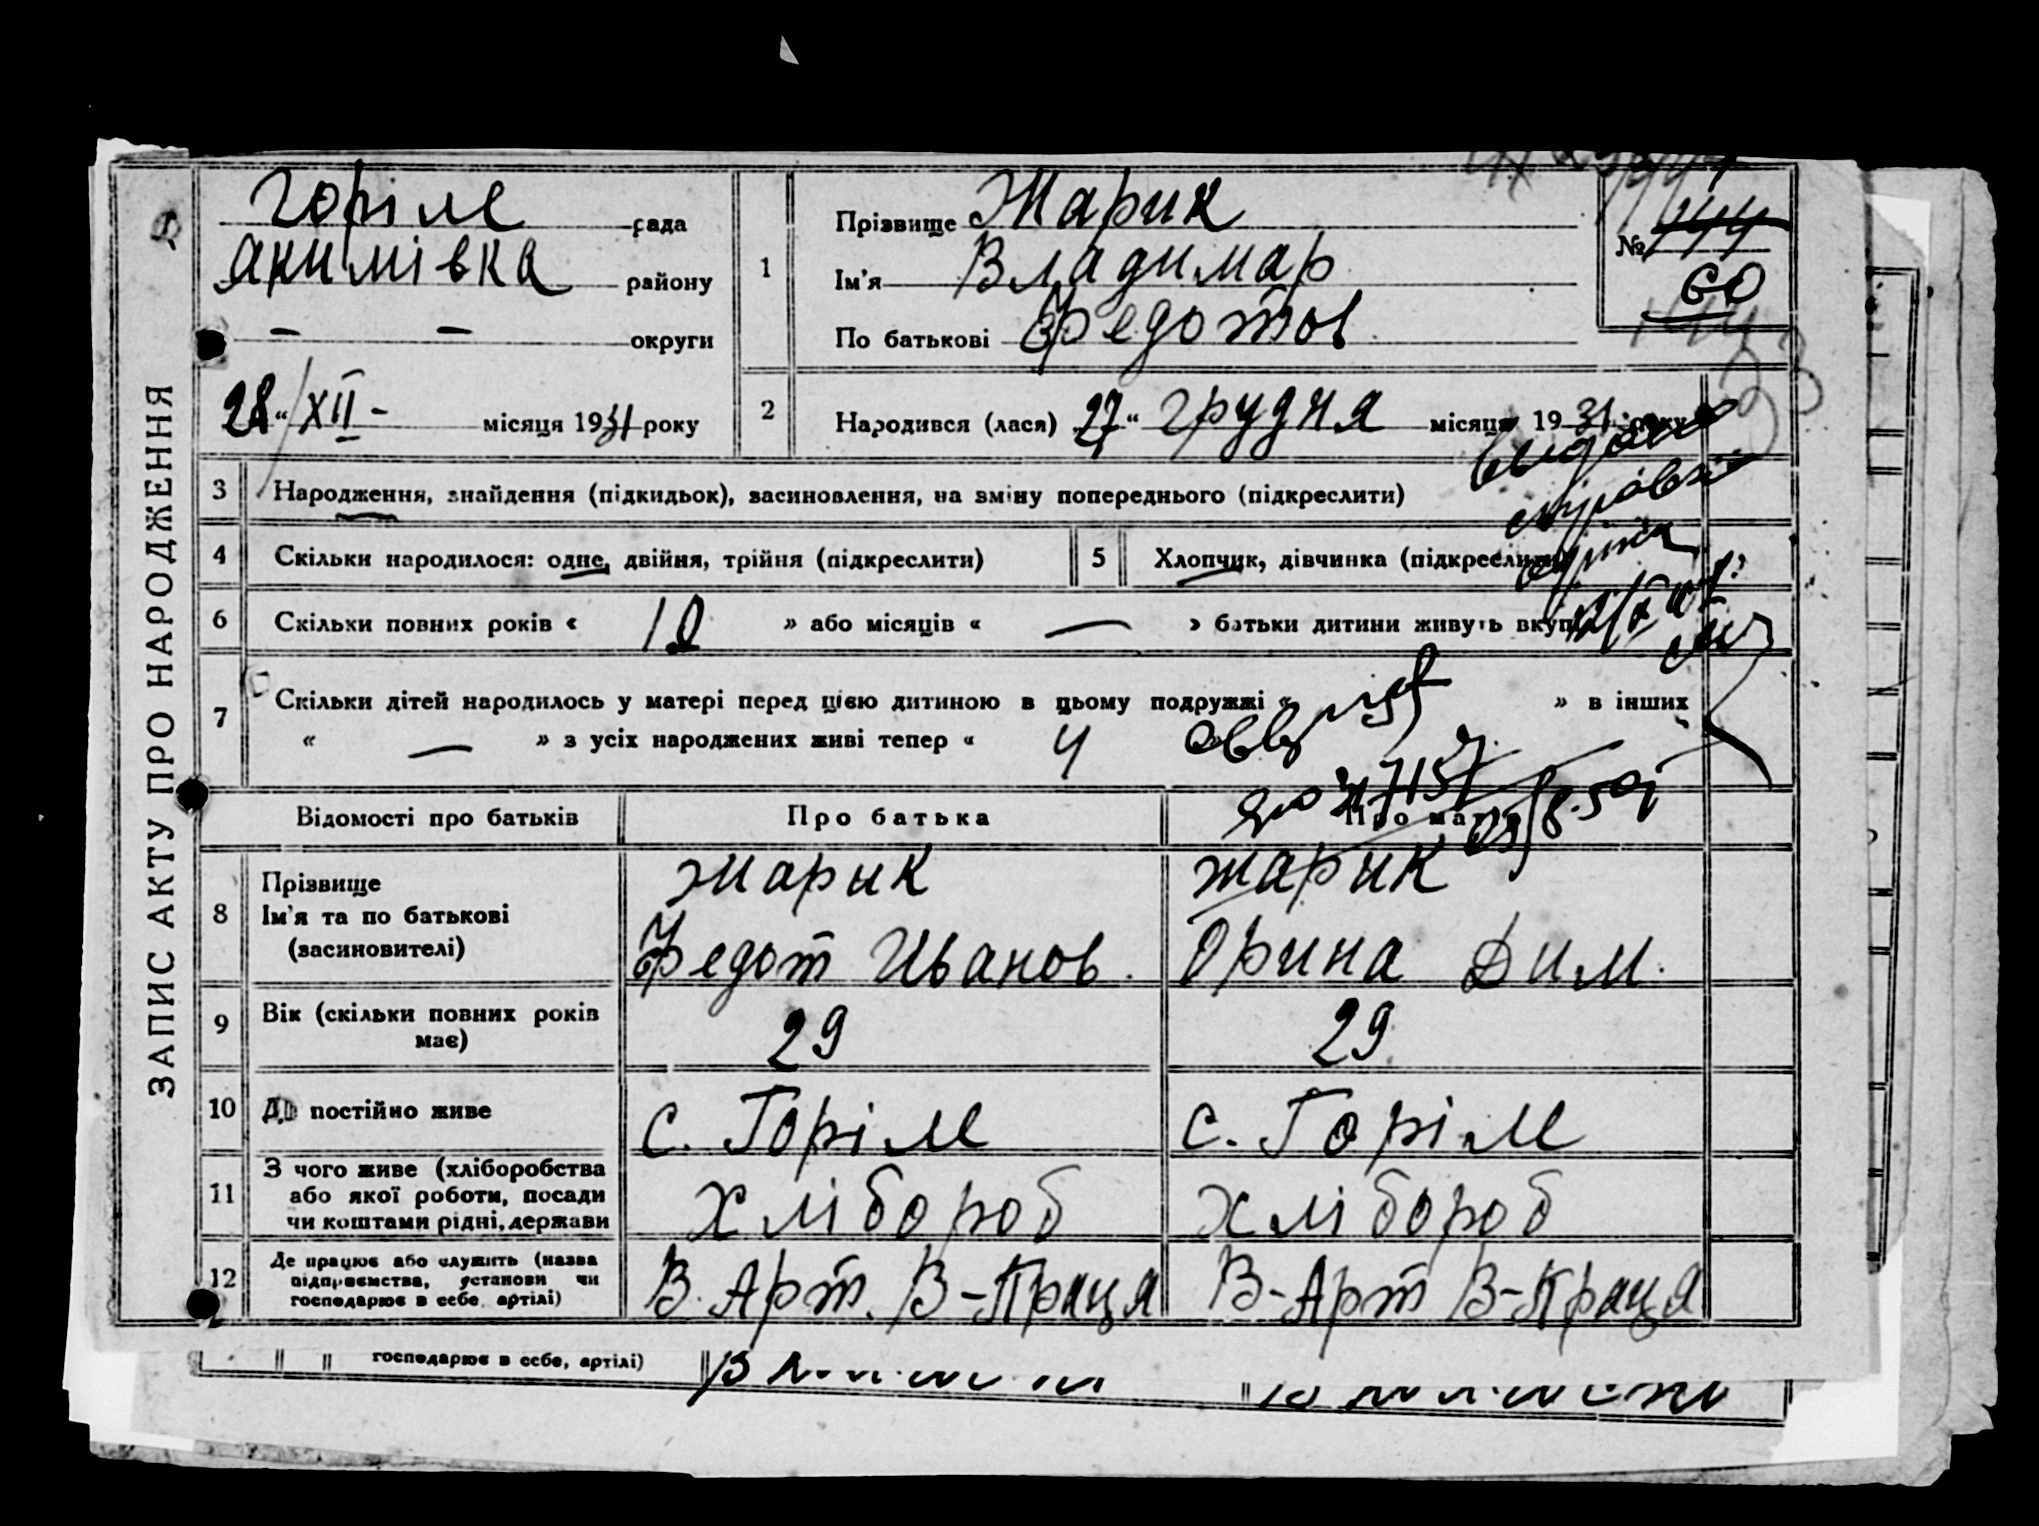 ЗАПИС АКТУ ПРО НАРОДЖЕННЯ
Горіле рада
Якимівка району
— — округи
28 " XII - місяця 1931 року
1
Прізвище Жарик
Ім'я Владимар
По батькові Федотов
№ 144
60
2
Народився (лася) „27" грудня місяця 1931 року
видано
3 Народження, знайдення (підкидьок), засиновлення, на зміну попереднього (підкреслити)
4 Скільки народилося: одне, двійня, трійня (підкреслити)
5 Хлопчик, дівчинка (підкреслити)
6 Скільки повних років « 10 » або місяців « — » батьки дитини живуть вкупі
7 Скільки дітей народилось у матері перед цією дитиною в цьому подружжі « » в інших
« — » з усіх народжених живі тепер « 4
Відомості про батьків Про батька Про матір
8 Прізвище Жарик Жарик
Ім'я та по батькові
(засиновителі) Федот Иванов. Орина Дим.
9 Вік (скільки повних років має) 29 29
10 Де постійно живе с. Горіле с. Горіле
11 З чого живе (хліборобства
або якої роботи, посади
чи коштами рідні, держави Хлібороб Хлібороб
12 Де працює або служить (назва
підприємства, установи чи
господарює в себе, артілі) В. Арт. В-Праця В-Арт В-Праця
господарює в себе, артілі)